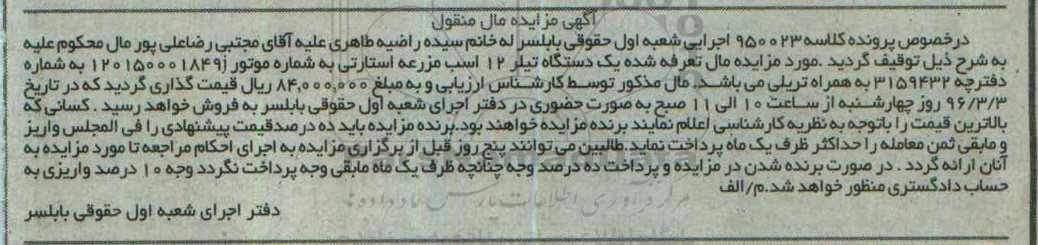 آگهی مزایده مال منقول
درخصوص پرونده کلاسه ۹۵۰۰۲۳ اجرایی شعبه اول حقوقی بابلسر له خانم سیده راضیه طاهری علیه آقای مجتبی رضاعلی پور مال محکوم علیه
به شرح ذیل توقیف گردید .مورد مزایده مال تعرفه شده یک دستگاه تیلر ۱۲ اسب مزرعه استارتی به شماره موتور ۱۲۰۱۵۰۰۰۱۸۴۹j به شماره
دفترچه ۳۱۵۹۴۳۲ به همراه تریلی می باشد. مال مذکور توسط کارشناس ارزیابی و به مبلغ ۸۴,۰۰۰,۰۰۰ ریال قیمت گذاری گردید که در تاریخ
۹۶/۳/۳ روز چهارشنبه از ساعت ۱۰ الی ۱۱ صبح به صورت حضوری در دفتر اجرای شعبه اول حقوقی بابلسر به فروش خواهد رسید . کسانی که
بالاترین قیمت را باتوجه به نظریه کارشناسی اعلام نمایند برنده مزایده خواهند بود.برنده مزایده باید ده درصدقیمت پیشنهادی را فی المجلس واریز
و مابقی ثمن معامله را حداکثر ظرف یک ماه پرداخت نماید.طالبین می توانند پنج روز قبل از برگزاری مزایده به اجرای احکام مراجعه تا مورد مزایده به
آنان ارائه گردد . در صورت برنده شدن در مزایده و پرداخت ده درصد وجه چنانچه ظرف یک ماه مابقی وجه پرداخت نگردد وجه ۱۰ درصد واریزی به
حساب دادگستری منظور خواهد شد.م/الف
دفتر اجرای شعبه اول حقوقی بابلسر